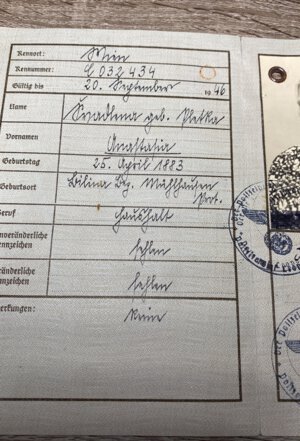 Kennort: Wien
Kennummer: C 032434
Gültig bis 20. September 1946
Name Svadlena geb. Pletka
Vornamen Anastasia
Geburtstag 25. April 1883
Geburtsort Bilina Bez. Mühlhausen
Prot.
Beruf Haushalt
Unveränderliche
Kennzeichen fehlen
Veränderliche
Kennzeichen fehlen
Bemerkungen: Keine